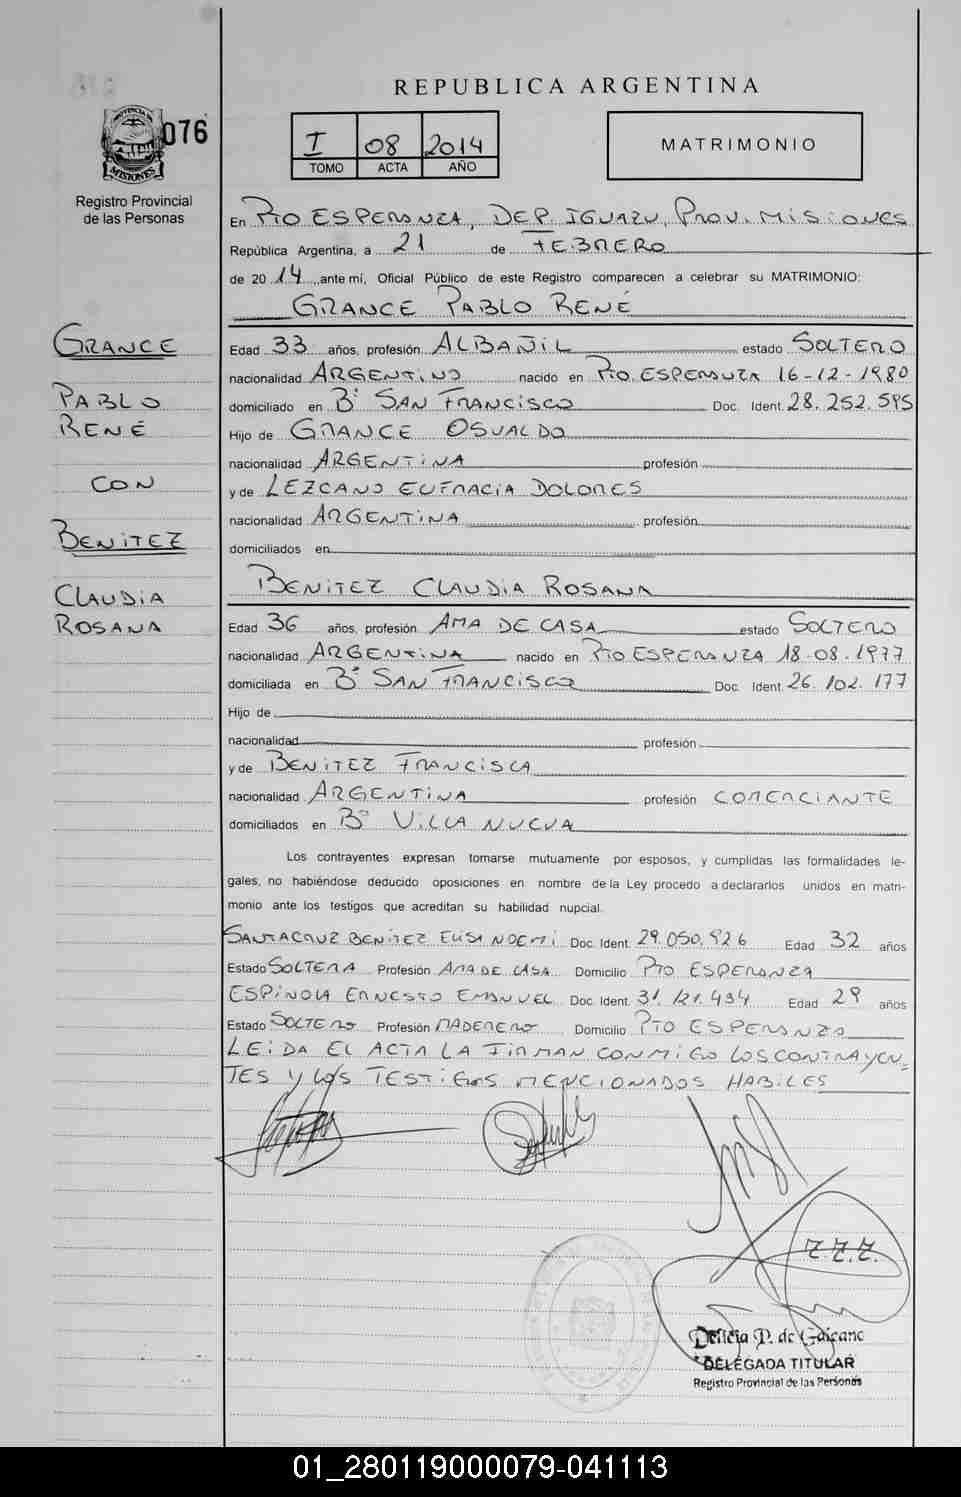 REPUBLICA ARGENTINA
076
I 08 2014
TOMO ACTA AÑO
MATRIMONIO
PROVINCIA DE
MISIONES
Registro Provincial
de las Personas
En Pto ESPERANZA, DEP. IGUAZU, PROV. MISIONES
República Argentina, a 21 de FEBRERO
de 2014, ante mí, Oficial Público de este Registro comparecen a celebrar su MATRIMONIO:
GRANCE PABLO RENÉ
GRANCE
PABLO
RENÉ
CON
BENITEZ
CLAUDIA
ROSANA
Edad 33 años, profesión ALBAÑIL estado SOLTERO
nacionalidad ARGENTINO nacido en Pto ESPERANZA 16-12-1980
domiciliado en Bº SAN FRANCISCO Doc. Ident. 28.252.595
Hijo de GRANCE OSVALDO
nacionalidad ARGENTINA profesión
y de LEZCANO EUFRACIA DOLORES
nacionalidad ARGENTINA profesión
domiciliados en
BENITEZ CLAUDIA ROSANA
Edad 36 años, profesión AMA DE CASA estado SOLTERO
nacionalidad ARGENTINA nacido en Pto ESPERANZA 18-08-1977
domiciliada en Bº SAN FRANCISCO Doc. Ident. 26.102.177
Hijo de
nacionalidad profesión
y de BENITEZ FRANCISCA
nacionalidad ARGENTINA profesión COMERCIANTE
domiciliados en Bº VILLA NUEVA
Los contrayentes expresan tomarse mutuamente por esposos, y cumplidas las formalidades le-
gales, no habiéndose deducido oposiciones en nombre de la Ley procedo a declararlos unidos en matri-
monio ante los testigos que acreditan su habilidad nupcial.
SANTACRUZ BENITEZ ELISA NOEMI Doc. Ident. 29.050.926 Edad 32 años
Estado SOLTERA Profesión AMA DE CASA Domicilio Pto ESPERANZA
ESPINOLA ERNESTO EMANUEL Doc. Ident. 31.121.434 Edad 29 años
Estado SOLTERO Profesión MADERERO Domicilio Pto ESPERANZA
LEIDA EL ACTA LA FIRMAN CONMIGO LOS CONTRAYEN-
TES Y LOS TESTIGOS MENCIONADOS HABILES
Z.Z.Z.
DELEGADA TITULAR
Registro Provincial de las Personas
01_280119000079-041113